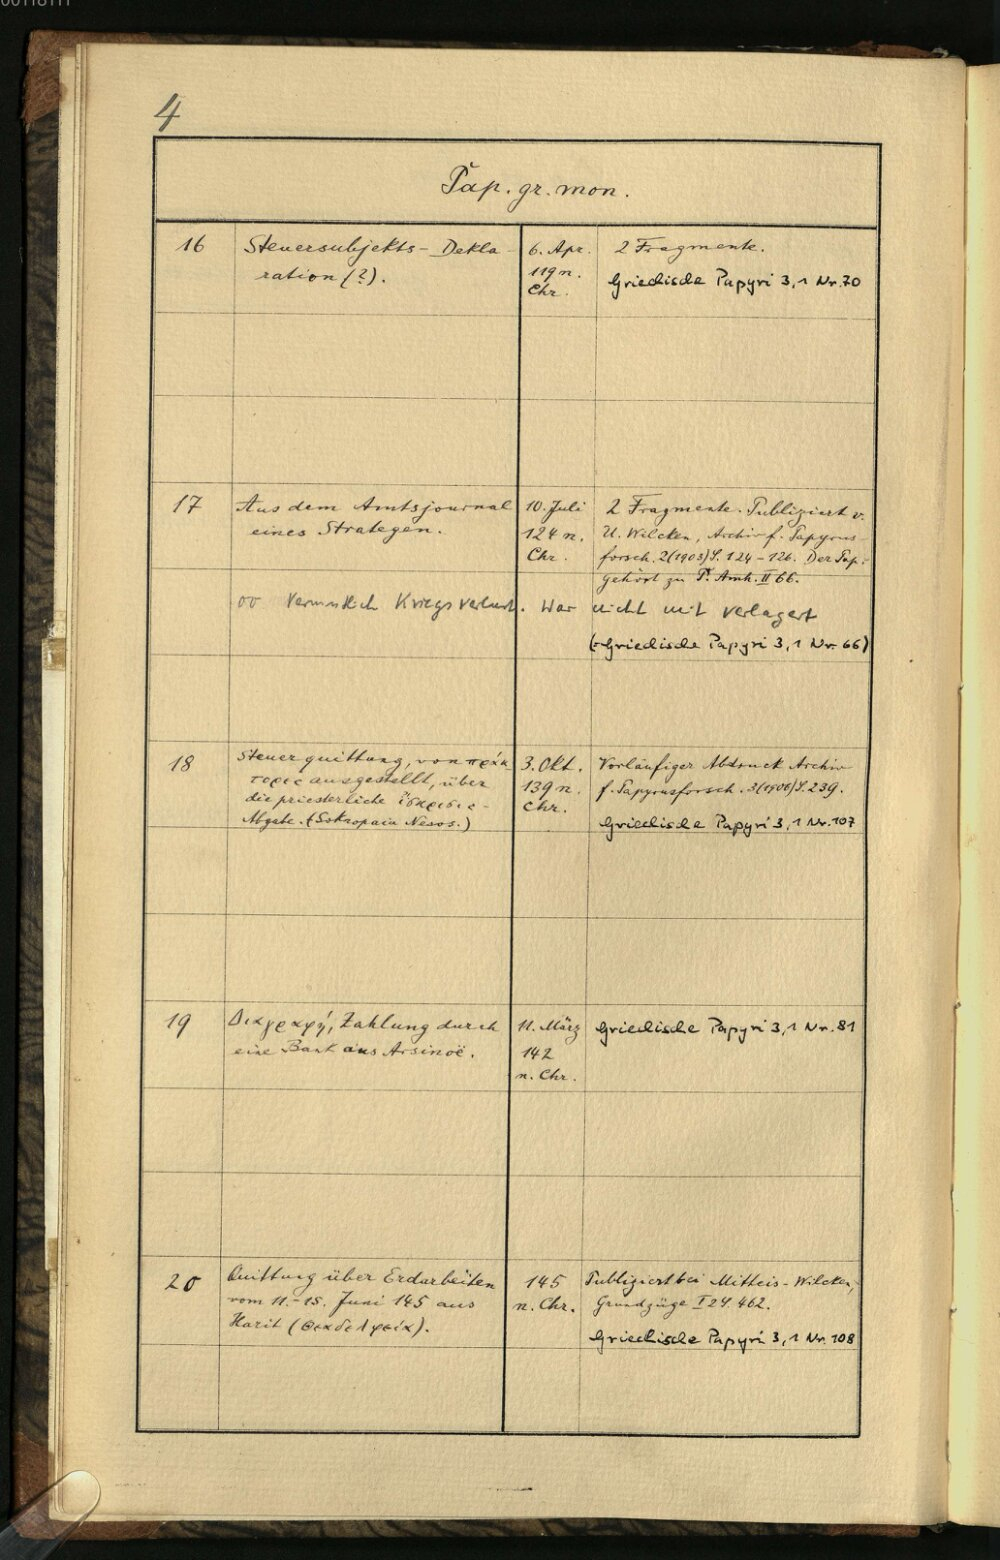 4
Pap. gr. mon.
16
Steuersubjekts-Dekla-
ration (?).
6. Apr.
119 n.
Chr.
2 Fragmente.
Griechische Papyri 3,1 Nr. 70
17
Aus dem Amtsjournal
eines Strategen.
10. Juli
124 n.
Chr.
2 Fragmente. Publiziert v.
U. Wilcken, Archiv f. Papyrus-
forsch. 2(1903)S. 124-126. Der Pap.
gehört zu P. Amh. II 66.
Vermutlich Kriegsverlust. War nicht mit verlagert
(Griechische Papyri 3,1 Nr. 66)
18
Steuerquittung, von πράκ-
τορες ausgestellt, über
die priesterliche
Abgabe. (Soknopaiu Nesos.)
3. Okt.
139 n.
Chr.
Vorläufiger Abdruck Archiv
f. Papyrusforsch. 3(1906)S. 239.
Griechische Papyri 3,1 Nr. 107
19
Διαγραφή, Zahlung durch
eine Bank aus Arsinoë.
11. März
142
n. Chr.
Griechische Papyri 3,1 Nr. 81
20
Quittung über Erdarbeiten
vom 11.-15. Juni 145 aus
Harit (Θεαδελφεία).
145
n. Chr.
Publiziert bei Mitteis-Wilcken,
Grundzüge I 2 S. 462.
Griechische Papyri 3,1 Nr. 108